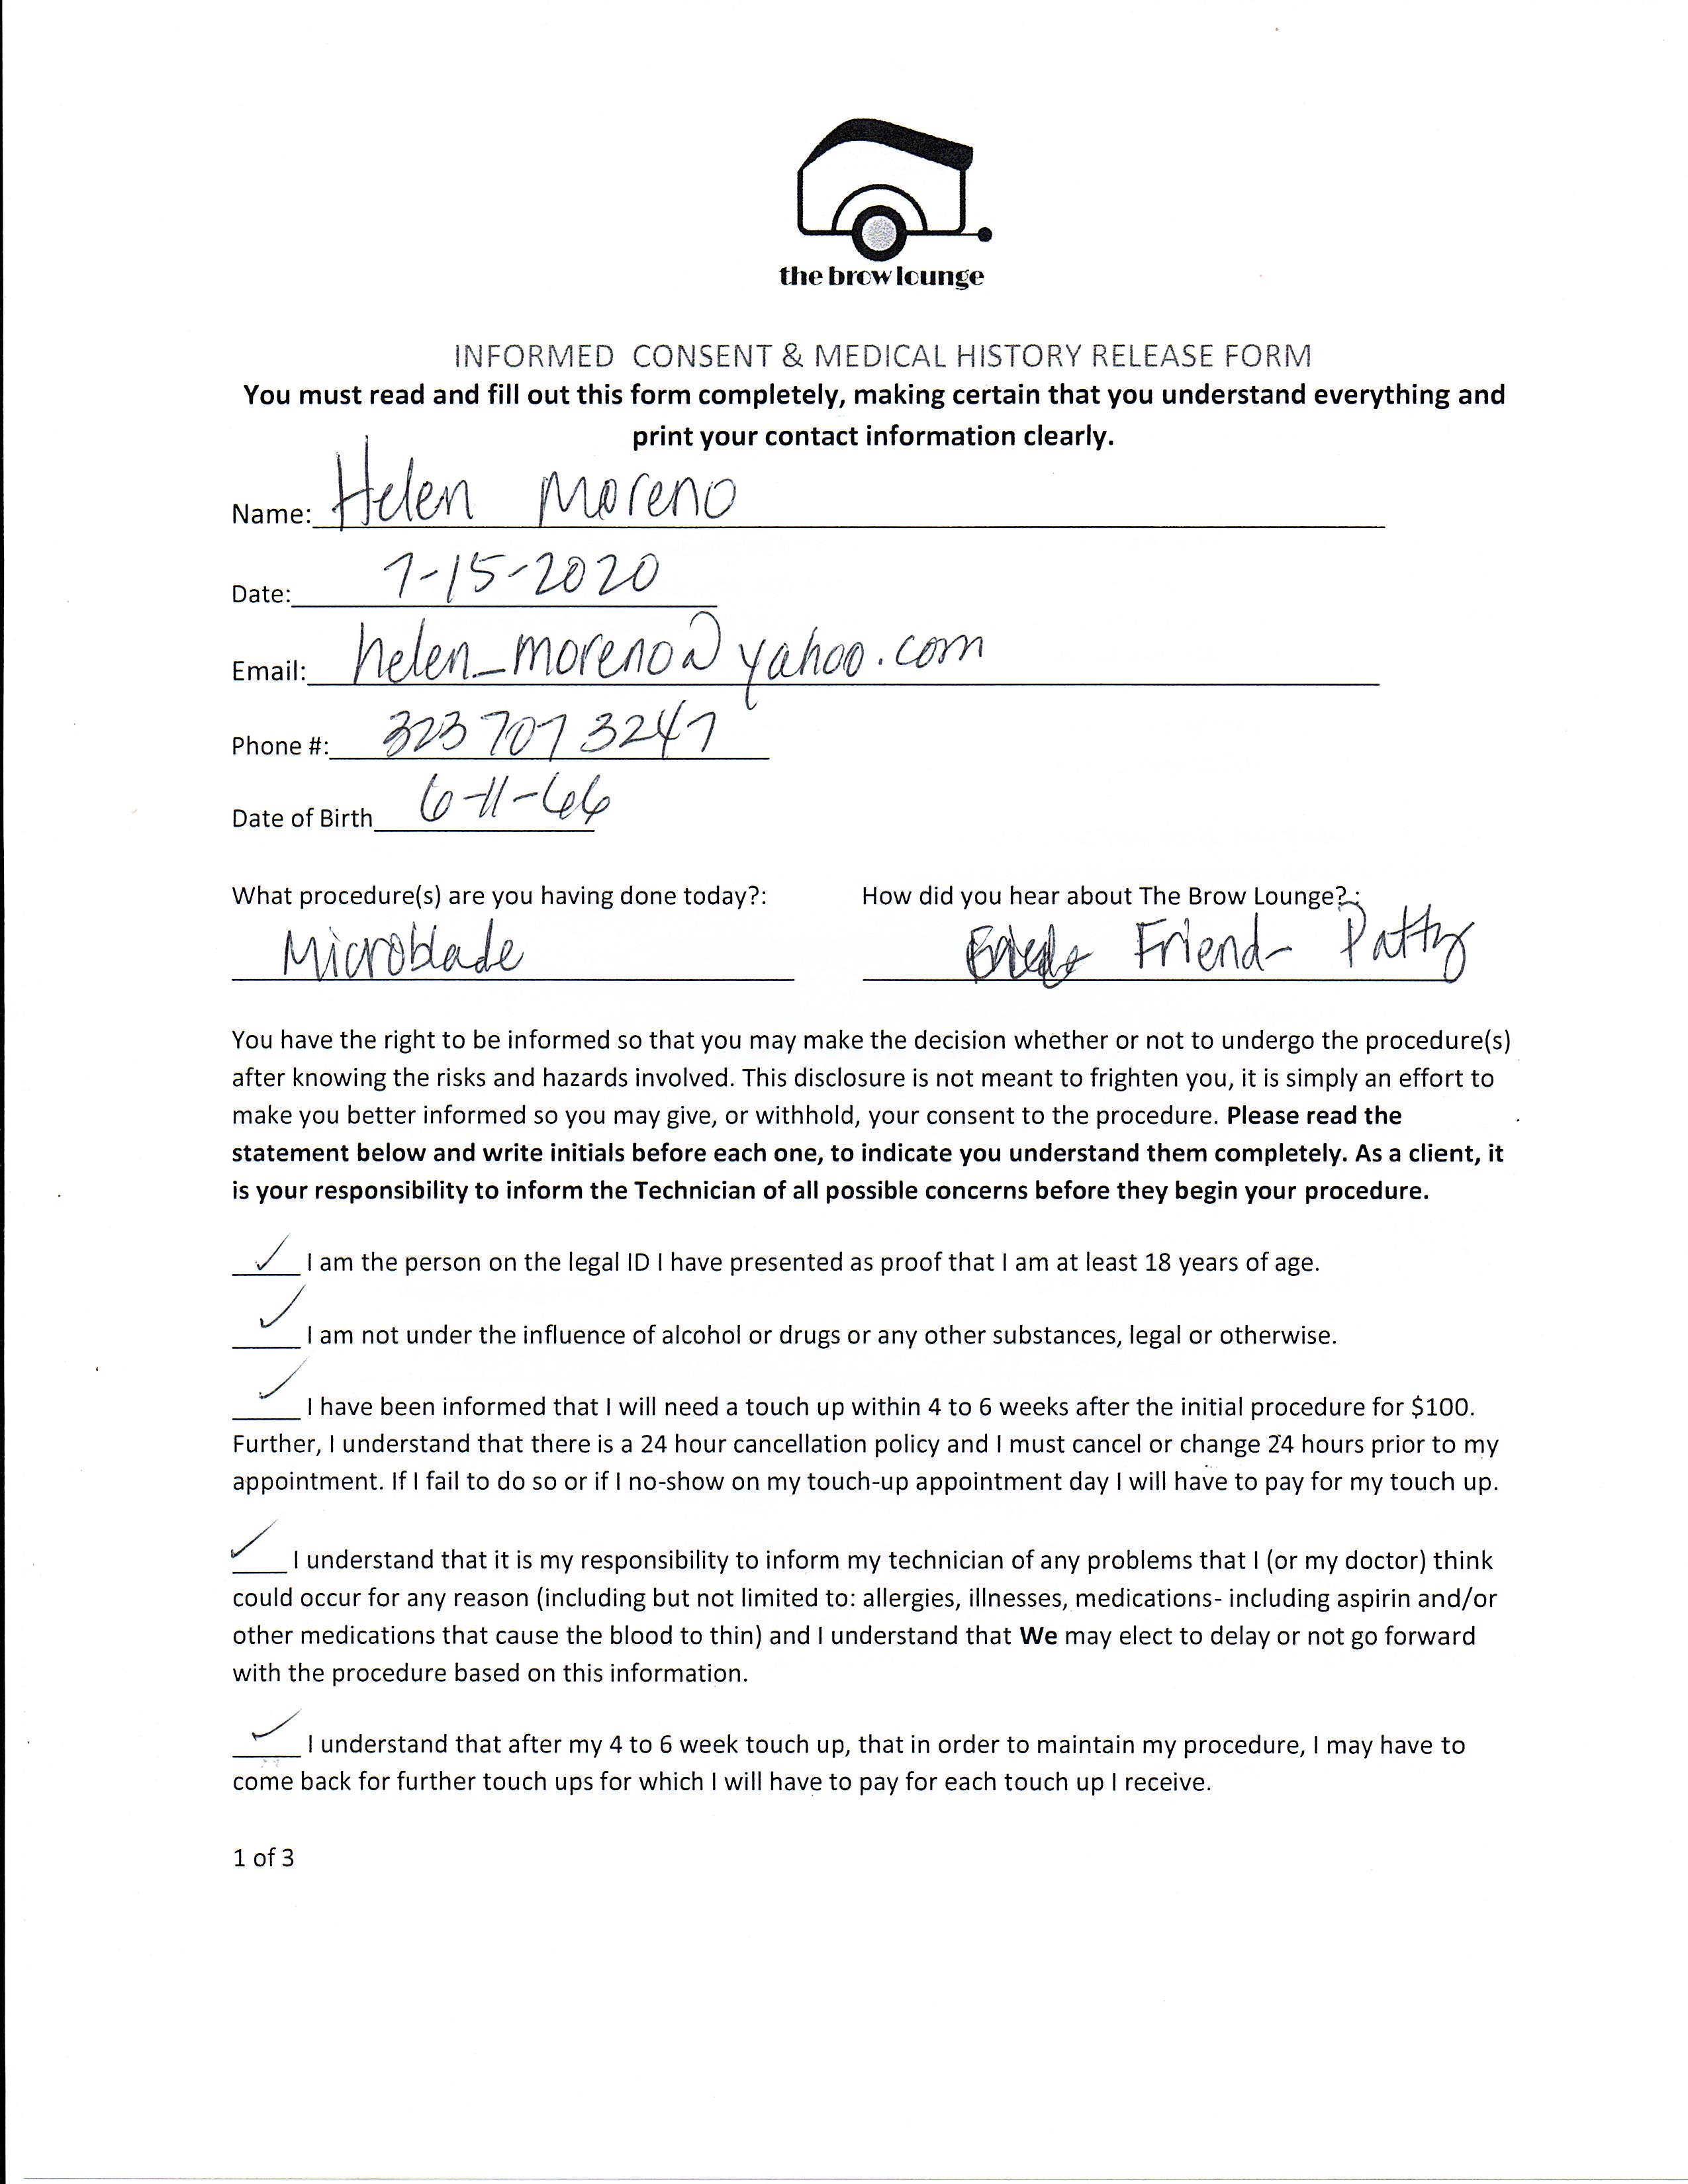 the brow lounge
INFORMED CONSENT & MEDICAL HISTORY RELEASE FORM
You must read and fill out this form completely, making certain that you understand everything and
print your contact information clearly.
Name: Helen Moreno
Date: 7-15-2020
Email: helen_moreno@yahoo.com
Phone #: 323 707 3247
Date of Birth 6-11-66
What procedure(s) are you having done today?: How did you hear about The Brow Lounge?:
Microblade Friend- Patty
You have the right to be informed so that you may make the decision whether or not to undergo the procedure(s)
after knowing the risks and hazards involved. This disclosure is not meant to frighten you, it is simply an effort to
make you better informed so you may give, or withhold, your consent to the procedure. Please read the
statement below and write initials before each one, to indicate you understand them completely. As a client, it
is your responsibility to inform the Technician of all possible concerns before they begin your procedure.
✓ I am the person on the legal ID I have presented as proof that I am at least 18 years of age.
✓ I am not under the influence of alcohol or drugs or any other substances, legal or otherwise.
✓ I have been informed that I will need a touch up within 4 to 6 weeks after the initial procedure for $100.
Further, I understand that there is a 24 hour cancellation policy and I must cancel or change 24 hours prior to my
appointment. If I fail to do so or if I no-show on my touch-up appointment day I will have to pay for my touch up.
✓ I understand that it is my responsibility to inform my technician of any problems that I (or my doctor) think
could occur for any reason (including but not limited to: allergies, illnesses, medications- including aspirin and/or
other medications that cause the blood to thin) and I understand that We may elect to delay or not go forward
with the procedure based on this information.
✓ I understand that after my 4 to 6 week touch up, that in order to maintain my procedure, I may have to
come back for further touch ups for which I will have to pay for each touch up I receive.
1 of 3